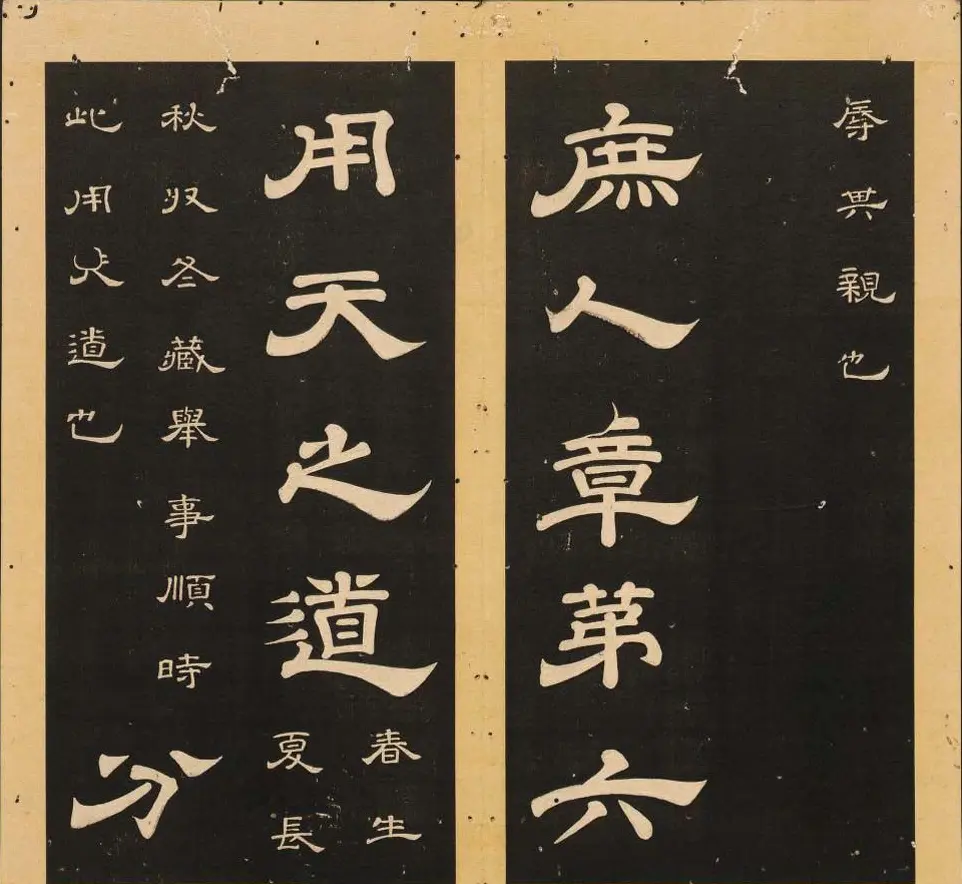 辱其親也
庶人章第六
用天之道
春生
夏長
秋収冬藏舉事順時
此用天道也
分